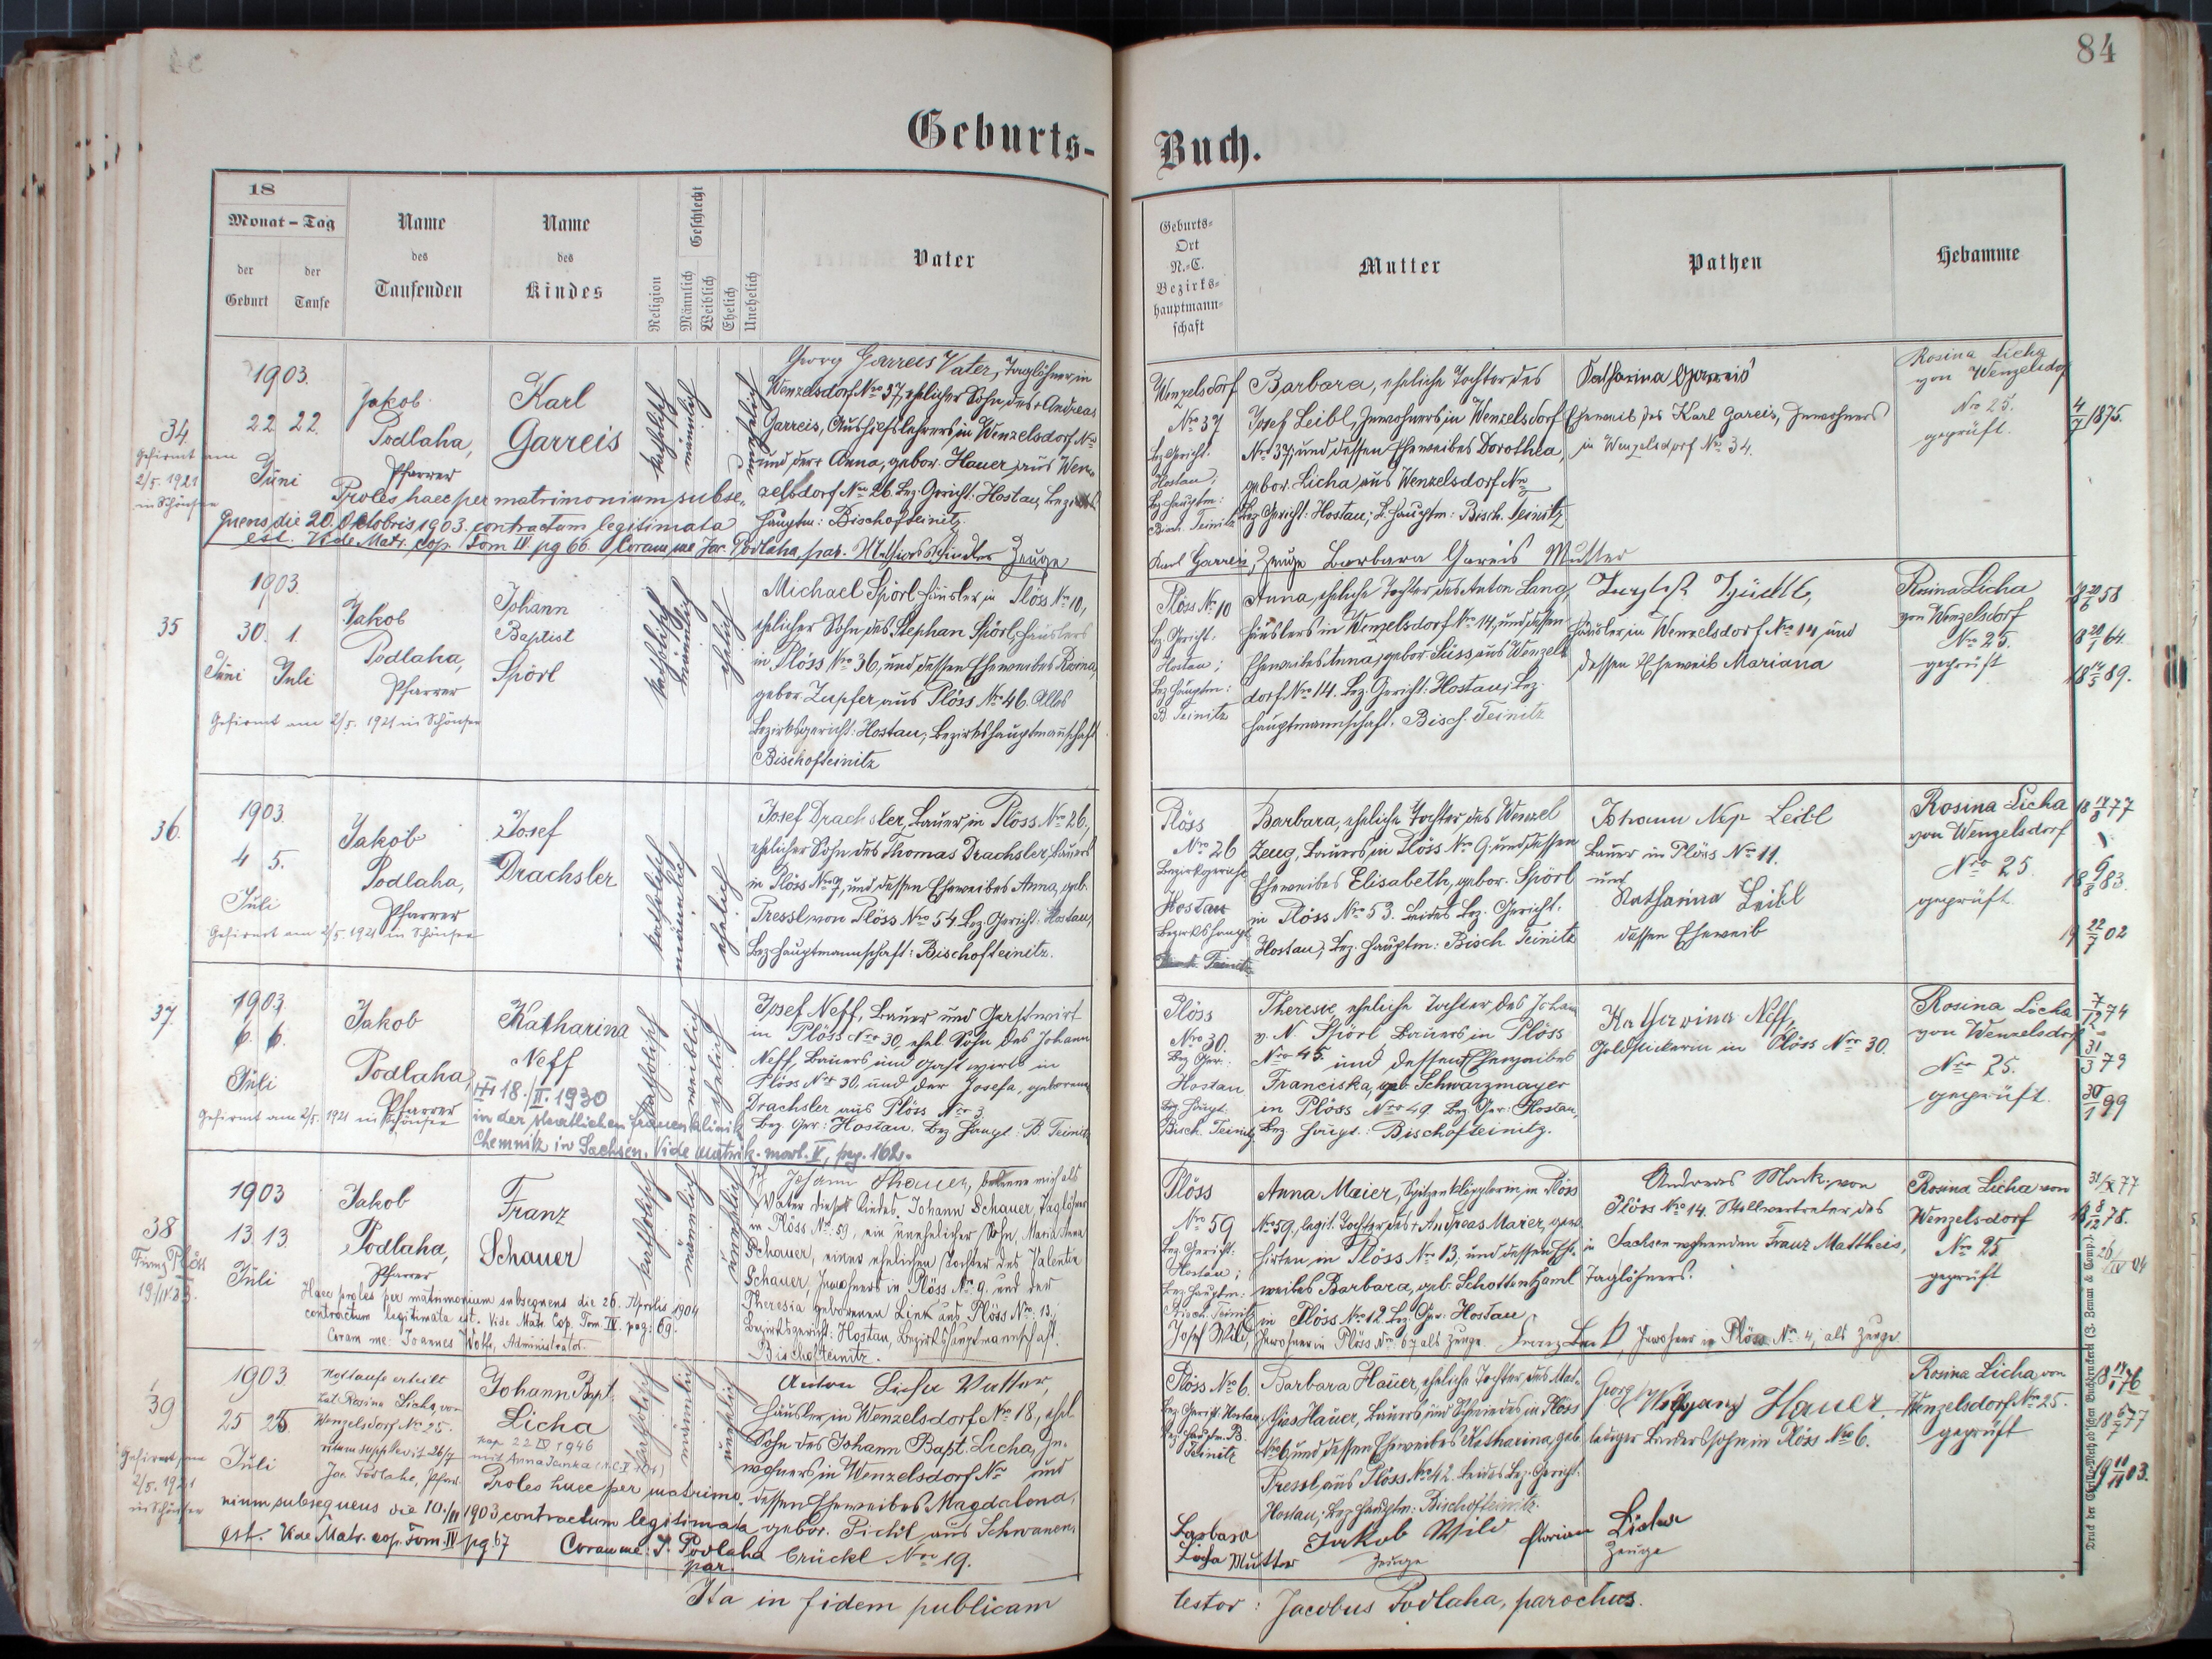 84
Geburts-
Buch.
18
Monat - Tag
der Geburt
der Taufe
Name
des
Taufenden
Name
des
Kindes
Religion
Männlich
Weiblich
Geschlecht
Ehelich
Unehelich
Vater
Geburts-
Ort
N.-C.
Bezirks-
hauptmann-
schaft
Mutter
Pathen
Hebamme
34.
Gefirmt am
2/5. 1921
in Schönsee
1903.
22 22.
Juni
Jakob
Podlaha,
Pfarrer
Karl
Garreis
katholisch
männlich
unehelich
Georg Garreis Vater, Taglöhner in
Wenzelsdorf Nro 37, ehelicher Sohn des + Andreas
Garreis, Aushilfslehrers in Wenzelsdorf Nro
und der + Anna, gebor. Hauer, aus Wen-
zelsdorf Nro 26. Bez. Gericht: Hostau, Bezirks
hauptm: Bischofteinitz.
Proles haec per matrimonium subse-
quens die 20. Oktobris 1903. contractum legitimata
est. Vide Matr. cop. Tom IV pg 66. Coram me Jac. Podlaha, par. Zeuge
Wenzelsdorf
Nro 37
Bez. Gericht:
Hostau;
Bez. Hauptm:
Bisch. Teinitz
Barbara, eheliche Tochter des
Josef Leibl, Inwohners in Wenzelsdorf
Nro 37, und dessen Eheweibes Dorothea,
gebor. Licha aus Wenzelsdorf Nro
Bez. Gericht: Hostau; B. Hauptm: Bisch. Teinitz
Karl Garreis, Zeuge Barbara Gareis Mutter
Katharina Garreis
Eheweib des Karl Gareis, Inwohners
in Wenzelsdorf Nro 34.
Rosina Licha
von Wenzelsdorf
Nro 25.
geprüft.
4/7 1875.
35
1903.
30. 1.
Juni Juli
Gefirmt am 2/5. 1921 in Schönsee
Jakob
Podlaha,
Pfarrer
Johann
Baptist
Spörl
katholisch
männlich
ehelich
Michael Spörl Häusler in Plöss Nro 10,
ehelicher Sohn des Stephan Spörl, Häuslers
in Plöss Nro 36, und dessen Eheweibes Rosina,
gebor. Zupfer, aus Plöss Nro 46. Alles
Bezirksgericht: Hostau; Bezirkshauptmannschaft
Bischofteinitz
Plöss Nro 10
Bz. Gericht:
Hostau;
Bez. Hauptm:
B. Teinitz
Anna, eheliche Tochter des Anton Lang,
Häuslers in Wenzelsdorf Nro 14, und dessen
Eheweibes Anna, gebor. Süss aus Wenzels
dorf Nro 14. Bez. Gericht: Hostau; Bez.
hauptmannschaft. Bisch. Teinitz
Häusler in Wenzelsdorf Nro 14, und
dessen Eheweib Mariana
Rosina Licha
von Wenzelsdorf
Nro 25.
geprüft
36.
1903.
4 5.
Juli
Gefirmt am 2/5. 1921 in Schönsee
Jakob
Podlaha,
Pfarrer
Josef
Drachsler
katholisch
männlich
ehelich
Josef Drachsler, Bauer in Plöss Nro 26.,
ehelicher Sohn des Thomas Drachsler, Bauers
in Plöss Nro 7, und dessen Eheweibes Anna, geb.
Pressl, von Plöss Nro 54. Bez. Gericht: Hostau;
Bez. hauptmannschaft: Bischofteinitz.
Plöss
Nro 26
Bezirksgericht
Hostau
Bezirkshaupt
Bisch. Teinitz
Barbara, eheliche Tochter des Wenzel
Zeug, Bauers in Plöss Nro 9. und dessen
Eheweibes Elisabeth, gebor. Spörl
in Plöss Nro 53. Beides Bez. Gericht:
Hostau; Bez. hauptm: Bisch. Teinitz
Johann Nep Leibl
Bauer in Plöss Nro 11.
und
Katharina Leibl
dessen Eheweib
Rosina Licha
von Wenzelsdorf
Nro 25.
geprüft
37.
1903.
6. 6.
Juli
Gefirmt am 2/5. 1921 in Schönsee
Jakob
Podlaha,
Pfarrer
Katharina
Neff
18./II. 1930
in der staatlichen Frauenklinik
Chemnitz in Sachsen. Vide Matrik. mort. V, pag. 162.
katholisch
weiblich
ehelich
Josef Neff, Bauer und Gastwirt
in Plöss Nro 30, ehel. Sohn des Johann
Neff, Bauers und Gastwirts in
Plöss Nro 30, und der Josefa, geborene
Drachsler aus Plöss Nro 3
Bez. Ger: Hostau. Bez. Haupt: B. Teinitz
Plöss
Nro 30.
Bez. Ger:
Hostau
Bez. Haupt:
Bisch. Teinitz
Therese, eheliche Tochter des Johann
v. N. Spörl Bauers in Plöss
Nro 45. und dessen Eheweibes
Franciska, geb. Schwarzmayer
in Plöss Nro 49. Bez. Ger: Hostau,
Bez. Haupt.: Bischofteinitz.
Katharina Neff,
Goldstickerin in Plöss Nro 30.
Rosina Licha
von Wenzelsdorf
Nro 25.
geprüft.
38
1903
13. 13.
Juli
Jakob
Podlaha,
Pfarrer
Franz
Schauer
katholisch
männlich
unehelich
Haec proles per matrimonium subsequens die 26. Aprilis 1904
contractum legitimata est. Vide Matr. Cop. Tom. IV. pag: 69.
Coram me: Joannes Administrator.
Ich Johann Schauer, bekenne mich als
Vater dieses Kindes. Johann Schauer, Taglöhner
in Plöss Nro 59, ein unehelicher Sohn, Maria Anna
Schauer, einer ehelichen Tochter des Valentin
Schauer, Inwohners in Plöss Nro 9. und der
Theresia geborenen Link aus Plöss Nro 13.;
Bezirksgericht: Hostau, Bezirkshauptmannschaft.
Bischofteinitz.
Plöss
Nro 59
Bez. Gericht:
Hostau;
Bez. Hauptm:
Bisch. Teinitz
Anna Maier, Spitzenklöpplerin in Plöss
Nro 59, legit. Tochter des + Andreas Maier, gew.
Hirten in Plöss Nro 13, und dessen Ehe-
weibes Barbara, geb. Schottenhaml
in Plöss Nro 12. Bz. Ger. Hostau
Josef Wild, Inwohner in Plöss Nro 67 als Zeuge. Inwohner in Plöss Nro 4, als Zeuge.
Andreas Mark von
Plöss Nro 14. Stellvertreter des
in Sachsen wohnenden Franz Mattheis,
Taglöhners.
Rosina Licha von
Wenzelsdorf
Nro 25.
geprüft
39
Gefirmt am
2/5. 1921
in Schönsee
1903
25 25
Juli
Nottaufe erteilt
hat Rosina Licha, von
Wenzelsdorf Nro 25.
ritum supplevit 26/7
Jac. Podlaha, Pfarrer
Johann Bapt.
Licha
cop. 22 IV 1946
katholisch
männlich
unehelich
Anton Licha Vatter,
Häusler in Wenzelsdorf Nro 18, ehel.
Sohn des Johann Bapt. Licha, In-
wohners in Wenzelsdorf Nro und
dessen Eheweibes Magdalena,
gebor. Pichl aus Schwanen-
brückl Nro 19.
Proles haec per matrimo-
nium subsequens die 10./11 1903 contractum legitimata
est. Vide Matr. cop. Tom. IV pg. 67 Coram me: J. Podlaha
par.
Plöss Nro 6.
Bez. Gericht: Hostau
Bez. Hauptm. B.
Teinitz
Barbara Hauer, eheliche Tochter des Mat-
thias Hauer, Bauers und Schmiedes in Plöss
Nro 6, und dessen Eheweibes Katharina, geb.
Pressl, aus Plöss Nro 42. Beides Bez. Gericht:
Hostau; Bez. Hauptm: Bischofteinitz.
Barbara
Licha Mutter
Jakob Wild
Zeuge
Florian Licha
Zeuge
Georg Wolfgang Hauer,
lediger Bauerssohn in Plöss Nro 6.
Rosina Licha von
Wenzelsdorf Nro 25.
geprüft
Ita in fidem publicam
testor: Jacobus Podlaha, parochus.